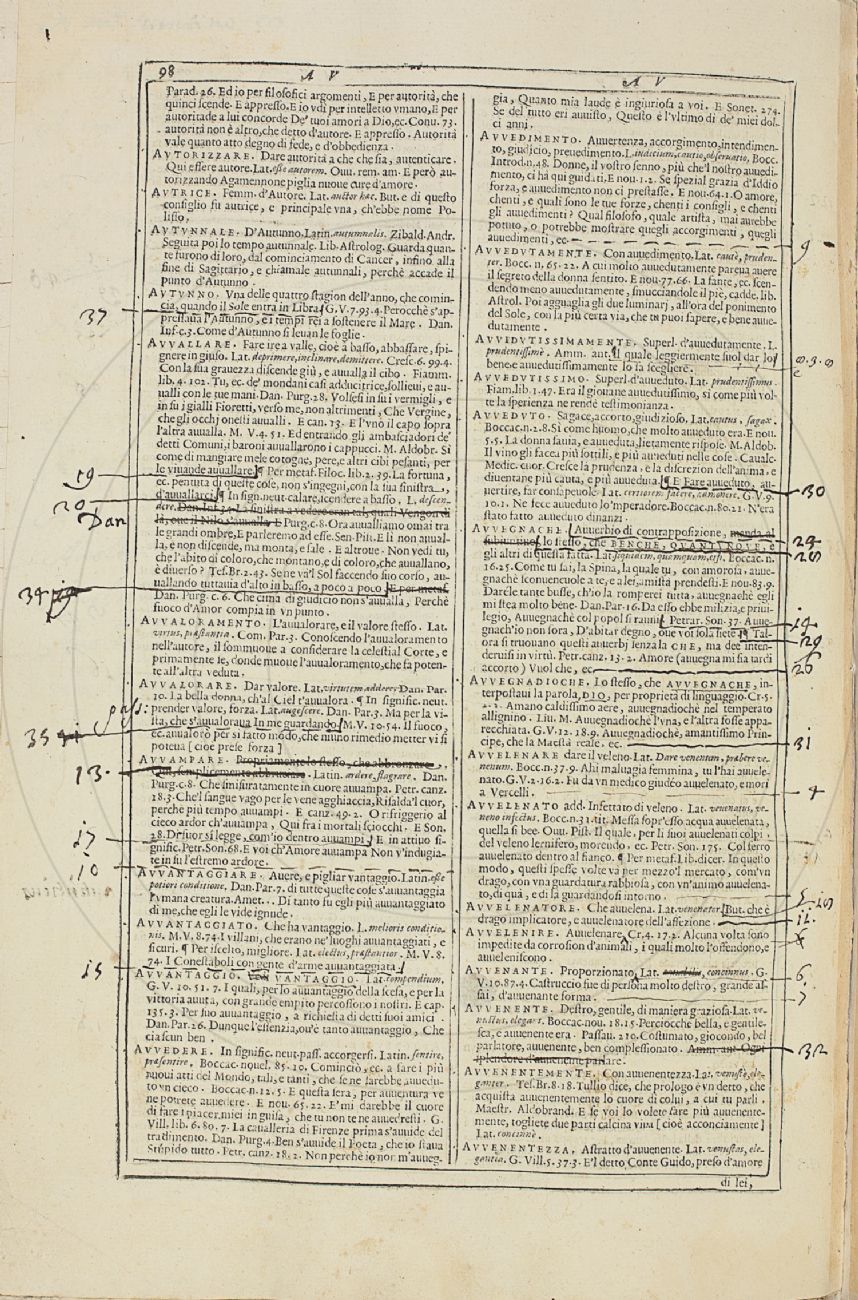 98
A V
A V
Parad. 26. Ed io per filosofici argomenti, E per autorità, che
quinci scende. E appresso. E io vdi per intelletto vmano, E per
autoritade a lui concorde De' tuoi amori a Dio, ec. Conu. 73.
autorità non è altro, che detto d'autore. E appresso. Autorità
vale quanto atto degno di fede, e d'obbedienza.
AVTORIZZARE. Dare autorità a che che sia, autenticare.
Qui essere autore. Lat. esse autorem. Ouu. rem. am. E però au-
torizzando Agamennone piglia nuoue cure d'amore.
AVTRICE. Femm. d'Autore. Lat. auctor hac. But. e di questo
consiglio fu autrice, e principale vna, ch'ebbe nome Po-
lisso.
AVTVNNALE. D'Autunno. Latin. autumnalis. Zibald. Andr.
Seguita poi lo tempo autunnale. Lib. Astrolog. Guarda quan-
te furono di loro, dal cominciamento di Cancer, infino alla
fine di Sagittario, e chiamale autunnali, perchè accade il
punto d'Autunno.
AVTVNNO. Vna delle quattro stagion dell'anno, che comin-
cia, quando il Sole entra in Libra. G. V. 7. 93. 4. Perocchè s'ap-
pressaua l'Autunno, e i tempi rei a sostenere il Mare. Dan.
Inf. c. 3. Come d'Autunno si leuan le foglie.
37
AVVALLARE. Fare ire a valle, cioè a basso, abbassare, spi-
gnere in giuso. Lat. deprimere, inclinare, demittere. Cresc. 6. 99. 4.
Con la sua grauezza discende giù, e auualla il cibo. Fiamm.
lib. 4. 102. Tu, ec. de' mondani casi adducitrice, sollieui, e au-
ualli con le tue mani. Dan. Purg. 28. Volsesi in su i vermigli, e
in su i gialli Fioretti, verso me, non altrimenti, Che Vergine,
che gli occhj onesti auualli. E can. 13. E l'vno il capo sopra
l'altra auualla. M. V. 4. 51. Ed entrando gli ambasciadori de'
detti Comuni, i baroni auuallarono i cappucci. M. Aldobr. Si
come di mangiare mele cotogne, pere, e altri cibi pesanti, per
le viuande auuallare. ¶ Per metaf. Filoc. lib. 2. 39. La fortuna,
ec. pentuta di queste cose, non s'ingegni, con la sua sinistra,
d'auuallarci. ¶ In sign. neut. calare, scendere a basso. L. descen-
dere. Dan. Inf. 34. La sinistra a vedere eran tal, quali Vengon di
là, oue il Nilo s'auualla. E Purg. c. 8. Ora auualliamo omai tra
le grandi ombre, E parleremo ad esse. Sen. Pist. E li non auual-
la, e non discende, ma monta, e sale. E altroue. Non vedi tu,
che l'abito di coloro, che montano, e di coloro, che auuallano,
è diuerso? Tes. Br. 2. 43. Se ne va'l Sol faccendo suo corso, au-
uallando tuttauia d'alto in basso, a poco a poco. E per metaf.
Dan. Purg. c. 6. Che cima di giudicio non s'auualla, Perchè
fuoco d'Amor compia in vn punto.
19
20
Dan
34
AVVALORAMENTO. L'auualorare, e il valore stesso. Lat.
virtus, præstantia. Com. Par. 3. Conoscendo l'auualoramento
nell'autore, il sommuoue a considerare la celestial Corte, e
primamente se, donde muoue l'auualoramento, che fa poten-
te all'altra veduta.
AVVALORARE. Dar valore. Lat. virtutem addere. Dan. Par.
10. La bella donna, ch'al Ciel t'auualora. ¶ In signific. neut.
prender valore, forza. Lat. augescere. Dan. Par. 3. Ma per la vi-
sta, che s'auualoraua In me guardando. M. V. 10. 54. Il fuoco,
ec. auualorò per sì fatto modo, che niuno rimedio metter vi si
poteua [cioè prese forza]
pass:
35
AVVAMPARE. Propriamente lo stesso, che abbronzare,
Qui, semplicemente abbruciare. Latin. ardere, flagrare. Dan.
Purg. c. 8. Che smisuratamente in cuore auuampa. Petr. canz.
18. 3. Che'l sangue vago per le vene agghiaccia, Risalda'l cuor,
perchè più tempo auuampi. E canz. 49. 2. O rifriggerio al
cieco ardor ch'auuampa, Qui fra i mortali sciocchi. E Son.
28. Di fuor si legge, com'io dentro auuampi. E in attiuo si-
gnific. Petr. Son. 68. E voi ch'Amore auuampa Non v'indugia-
te in su l'estremo ardore.
13
17
10
AVVANTAGGIARE. Auere, e pigliar vantaggio. Latin. esse
potiori conditione. Dan. Par. 7. di tutte queste cose s'auuantaggia
L'vmana creatura. Amet... Di tanto fu egli più auuantaggiato
di me, che egli le vide ignude.
AVVANTAGGIATO. Che ha vantaggio. L. melioris conditio-
nis. M. V. 8. 74. I villani, che erano ne' luoghi auuantaggiati, e
sicuri. ¶ Per iscelto, migliore. Lat. electus, præstantior. M. V. 8.
74. I Conestaboli con gente d'arme auuantaggiata.
15
AVVANTAGGIO. VANTAGGIO. Lat. compendium.
G. V. 10. 51. 7. I quali, per lo auuantaggio della scesa, e per la
vittoria auuta, con grande empito percossono i nostri. E cap.
135. 3. Per suo auuantaggio, a richiesta di detti suoi amici.
Dan. Par. 26. Dunque l'essenzia, ou'è tanto auuantaggio, Che
ciascun ben.
AVVEDERE. In signific. neut. pass. accorgersi. Latin. sentire,
præsentire. Boccac. nouel. 85. 10. Cominciò, ec. a fare i più
nuoui atti del Mondo, tali, e tanti, che se ne sarebbe auuedu-
to vn cieco. Boccac. n. 12. 5. E questa sera, per auuentura ve
ne potrete auuedere. E nou. 65. 22. E' mi darebbe il cuore
di fare i piacer miei in guisa, che tu non te ne auuedresti. G.
Vill. lib. 6. 80. 7. La caualleria di Firenze prima s'auuide del
tradimento. Dan. Purg. 4. Ben s'auuide il Poeta, che io staua
Stupido tutto. Petr. canz. 18. 2. Non perchè io non m'auueg-
gia, Quanto mia laude è ingiuriosa a voi. E Sonet. 274.
Se del tutto eri auuisto, Questo è l'vltimo dì de' miei dol-
ci anni.
AVVEDIMENTO. Auuertenza, accorgimento, intendimen-
to, giudicio, preuedimento. L. iudicium, cautio, observatio, Bocc.
Introd. n. 48. Donne, il vostro senno, più che'l nostro auuedi-
mento, ci ha qui guidati. E nou. 1. 2. Se spezial grazia d'Iddio
forza, e auuedimento non ci prestasse. E nou. 64. 1. O amore,
chenti, e quali sono le tue forze, chenti i consigli, e chenti
gli auuedimenti? Qual filosofo, quale artista, mai aurebbe
potuto, o potrebbe mostrare quegli accorgimenti, quegli
auuedimenti, ec.
9
AVVEDVTAMENTE. Con auuedimento. Lat. cautè, pruden-
ter. Bocc. n. 65. 22. A cui molto auuedutamente pareua auere
il segreto della donna sentito. E nou. 77. 66. La fante, ec. scen-
dendo meno auuedutamente, smucciandole il piè, cadde. lib.
Astrol. Poi agguaglia gli due luminarj, all'ora del ponimento
del Sole, con la più certa via, che tu puoi sapere, e bene auue-
dutamente.
AVVIDVTISSIMAMENTE. Superl. d'auuedutamente. L.
prudentissimè. Amm. ant. Il quale leggiermente suol dar lo
bene e auuedutissimamente lo fa scegliere.
AVVEDVTISSIMO. Superl. d'auueduto. Lat. prudentissimus.
Fiam. lib. 1. 47. Era il giouane auuedutissimo, sì come più vol-
te la sperienza ne rendè testimonianza.
AVVEDVTO. Sagace, accorto, giudizioso. Lat. cautus, sagax.
Boccac. n. 2. 8. Sì come huomo, che molto auueduto era. E nou.
5. 5. La donna sauia, e auueduta, lietamente rispose. M. Aldob.
Il vino gli facea più sottili, e più auueduti nelle cose. Caualc.
Medic. cuor. Cresce la prudenza, e la discrezion dell'anima, e
diuentane più cauta, e più auueduta. ¶ E Fare auueduto, au-
uertire, far consapeuole. Lat. certiorem facere, admonere. G. V. 9.
10. 1. Ne fece auueduto lo'mperadore. Boccac. n. 80. 21. N'era
stato fatto auueduto dinanzi.
30
AVVEGNACHE. Auuerbio di contrapposizione, manda al
subiuntiuo, lo stesso, che BENCHE, QVANTVNQVE, e
gli altri di questa fatta. Lat. Boccac. n.
16. 25. Come tu sai, la Spina, la quale tu, con amorosa, auue-
gnachè sconueneuole a te, e a lei, amistà prendesti. E nou. 83. 9.
Darèle tante busse, ch'io la romperei tutta, auuegnachè egli
mi stea molto bene. Dan. Par. 16. Da esso ebbe milizia, e priui-
legio, Auuegnachè col popol si rauni. Petrar. Son. 37. Auue-
gnach'io non fora, D'abitar degno, oue voi sola siete. ¶ Tal-
ora si truouano questi auuerbj senza la CHE, ma dee inten-
deruisi in virtù. Petr. canz. 13. 2. Amore (auuegna mi sia tardi
accorto) Vuol che, ec.
29
AVVEGNADIOCHE. Lo stesso, che AVVEGNACHE, in-
terpostaui la parola, DIO, per proprietà di linguaggio. Cr. 5.
2. 2. Amano caldissimo aere, auuegnadiochè nel temperato
allignino. Liu. M. Auuegnadiochè l'vna, e l'altra fosse appa-
recchiata. G. V. 12. 18. 9. Auuegnadiochè, amantissimo Prin-
cipe, che la Maestà reale. ec.
31
AVVELENARE dare il veleno. Lat. Dare venenum, præbere ve-
nenum. Bocc. n. 37. 9. Ahi maluagia femmina, tu l'hai auuele-
nato. G. V. 2. 16. 2. Fu da vn medico giudeo auuelenato, e morì
a Vercelli.
4
AVVELENATO add. Infettato di veleno. Lat. venenatus, ve-
neno infectus. Bocc. n. 31. tit. Messa sopr'esso acqua auuelenata,
quella si bee. Ouu. Pist. Il quale, per li suoi auuelenati colpi
del veleno lernifero, morendo. ec. Petr. Son. 175. Col ferro
auuelenato dentro al fianco. ¶ Per metaf. Lib. dicer. In questo
modo, questi spesse volte va per mezzo'l mercato, com'vn
drago, con vna guardatura rabbiosa, con vn'animo auuelena-
to, di quà, e di là guardandosi intorno.
5
AVVELENATORE. Che auuelena. Lat. venenator. But. che è
drago implicatore, e auuelenatore dell'affezione.
AVVELENIRE. Auuelenare. Cr. 4. 17. 2. Alcuna volta sono
impedite da corrosion d'animali, i quali molto l'offendono, e
auueleniscono.
AVVENANTE. Proporzionato, Lat. concinnus. G.
V. 10. 87. 4. Castruccio fue di persona molto destro, grande as-
sai, d'auuenante forma.
6
7
AVVENENTE. Destro, gentile, di maniera graziosa. Lat. ve-
nustus, elegans. Boccac. nou. 18. 15. Perciocchè bella, e gentile-
sca, e auuenente era. Passau. 210. Costumato, giocondo, bel
parlatore, auuenente, ben complessionato. Amm. ant. Ogni
splendore d'auuenente parlare.
32
AVVENENTEMENTE. Con auuenentezza. Lat. venustè, ele-
ganter. Tes. Br. 8. 18. Tullio dice, che prologo è vn detto, che
acquista auuenentemente lo cuore di colui, a cui tu parli.
Maestr. Aldobrand. E se voi lo volete fare più auuenente-
mente, togliete due parti calcina viua [cioè acconciamente]
Lat. concinnè.
AVVENENTEZZA. Astratto d'auuenente. Lat. venustas, ele-
gantia. G. Vill. 5. 37. 3. E'l detto Conte Guido, preso d'amore
di lei,